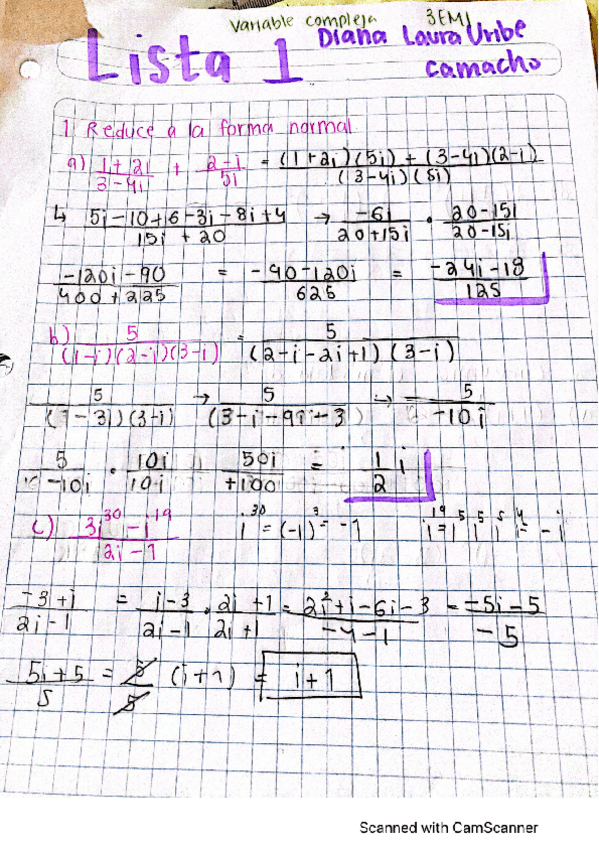 Variable compleja 3EM1
Lista 1 Diana Laura Uribe
camacho
1. Reduce a la forma normal
a) (1+2i)/(3-4i) + (2-i)/(5i) = ((1+2i)(5i) + (3-4i)(2-i))/((3-4i)(5i))
↳ (5i-10+6-3i-8i+4)/(15i+20) → (-6i)/(20+15i) · (20-15i)/(20-15i)
(-120i-90)/(400+225) = (-90-120i)/625 = (-24i-18)/125
b) 5/((1-i)(2-i)(3-i)) = 5/((2-i-2i+1)(3-i))
5/((1-3i)(3-i)) → 5/(3-i-9i-3) → 5/(-10i)
5/(-10i) · 10i/10i 50i/+100 = 1/2 i
c) (3i^30 - i^19)/(2i-1) i^30 = (-1)^3 = -1 i^19 = i^5 i^5 i^5 i^4 = -i
(-3+i)/(2i-1) = (i-3)/(2i-1) · (2i+1)/(2i+1) = (2i²+i-6i-3)/(-4-1) = (-5i-5)/(-5)
(5i+5)/5 = 5/5 (i+1) = i+1
Scanned with CamScanner